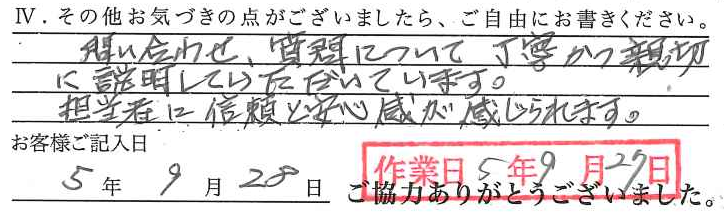 Ⅳ．その他お気づきの点がございましたら、ご自由にお書きください。
問い合わせ、質問について丁寧かつ親切
に説明していただいています。
担当者に信頼と安心感が感じられます。
お客様ご記入日
5年9月28日
作業日5年9月27日
ご協力ありがとうございました。